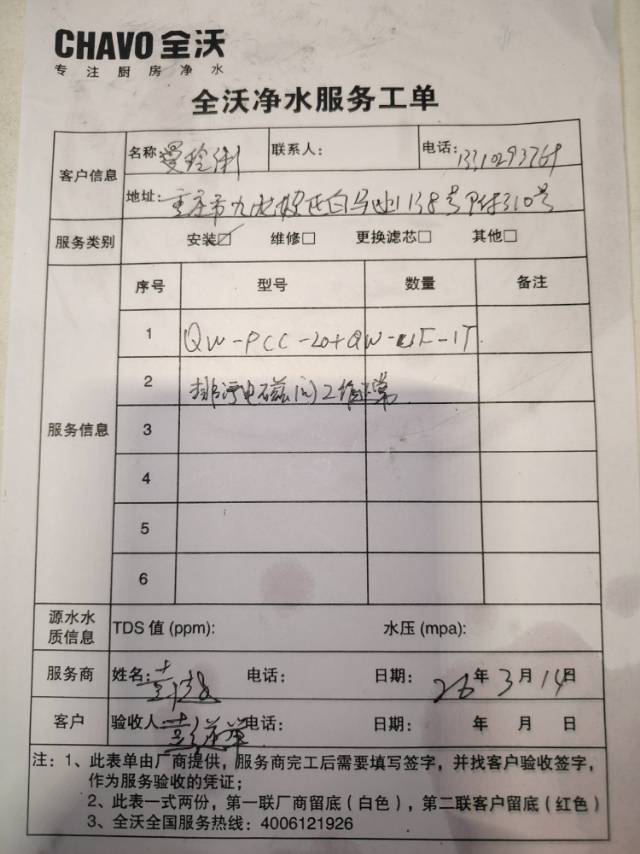 CHAVO 全沃
专注厨房净水
全沃净水服务工单
客户信息
名称 联系人： 电话：
地址：重庆市九龙坡区白马凼138号附310号
服务类别 安装☑ 维修□ 更换滤芯□ 其他□
服务信息
序号 型号 数量 备注
1 QW-PCC-20+QW-UF-1T
2 排污电磁阀工作正常
3
4
5
6
源水水质信息 TDS 值 (ppm): 水压 (mpa):
服务商 姓名: 电话: 日期: 26年3月14日
客户 验收人 电话: 日期: 年 月 日
注：1、此表单由厂商提供，服务商完工后需要填写签字，并找客户验收签字，
作为服务验收的凭证；
2、此表一式两份，第一联厂商留底（白色），第二联客户留底（红色）
3、全沃全国服务热线：4006121926